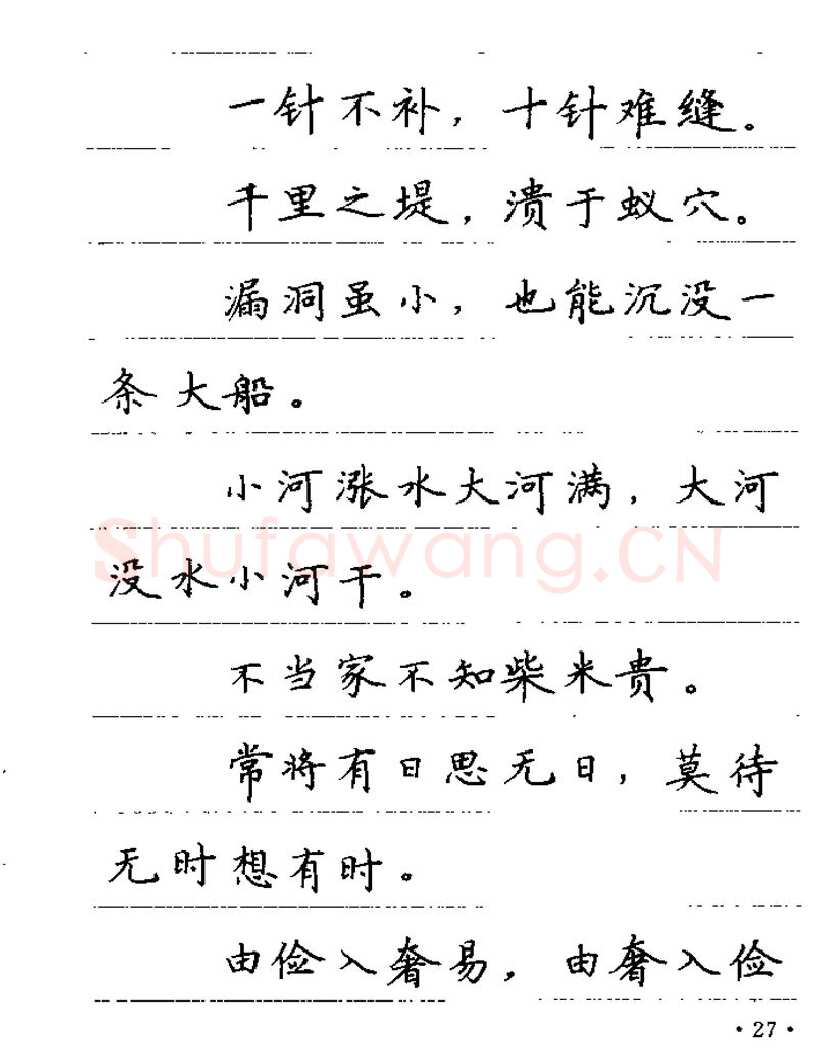 一针不补，十针难缝。
千里之堤，溃于蚁穴。
漏洞虽小，也能沉没一
条大船。
小河涨水大河满，大河
Shufawang.CN
没水小河干。
不当家不知柴米贵。
常将有日思无日，莫待
无时想有时。
由俭入奢易，由奢入俭
·27·